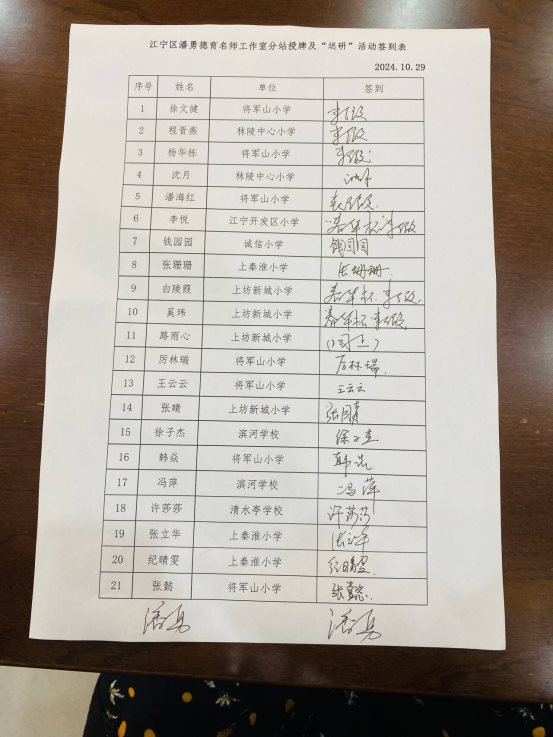 江宁区潘勇德育名师工作室分站授牌及“送研”活动签到表
2024.10.29
序号 姓名 单位 签到
1 徐文健 将军山小学
2 程晋燕 秣陵中心小学
3 杨华栋 将军山小学
4 沈月 秣陵中心小学 沈月
5 潘海红 将军山小学
6 李悦 江宁开发区小学
7 钱园园 诚信小学 钱园园
8 张珊珊 上秦淮小学 张珊珊
9 白陵葭 上坊新城小学
10 奚玮 上坊新城小学
11 路雨心 上坊新城小学 (同上)
12 厉林瑞 将军山小学 厉林瑞
13 王云云 将军山小学 王云云
14 张晴 上坊新城小学
15 徐子杰 滨河学校 徐子杰
16 韩焱 将军山小学 韩焱
17 冯萍 滨河学校 冯萍
18 许莎莎 清水亭学校 许莎莎
19 张立华 上秦淮小学 张立华
20 纪晴雯 上秦淮小学 纪晴雯
21 张懿 将军山小学 张懿
潘勇 潘勇